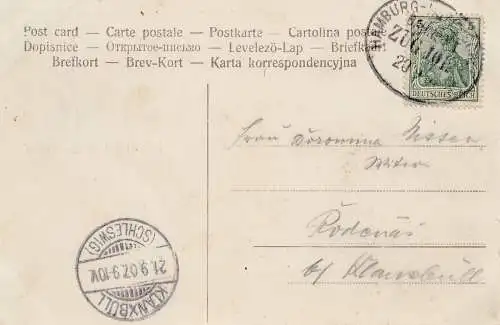 Post card — Carte postale — Postkarte — Cartolina postale
Dopisnice — Открытое-письмо — Levelező-Lap — Briefkaart
Brefkort — Brev-Kort — Karta korrespondencyjna
HAMBURG-
ZUG
DEUTSCHES REICH
Frau
Rodenäs
b/ Klanxbüll
KLANXBÜLL
21.9.07.9-10V.
(SCHLESWIG)